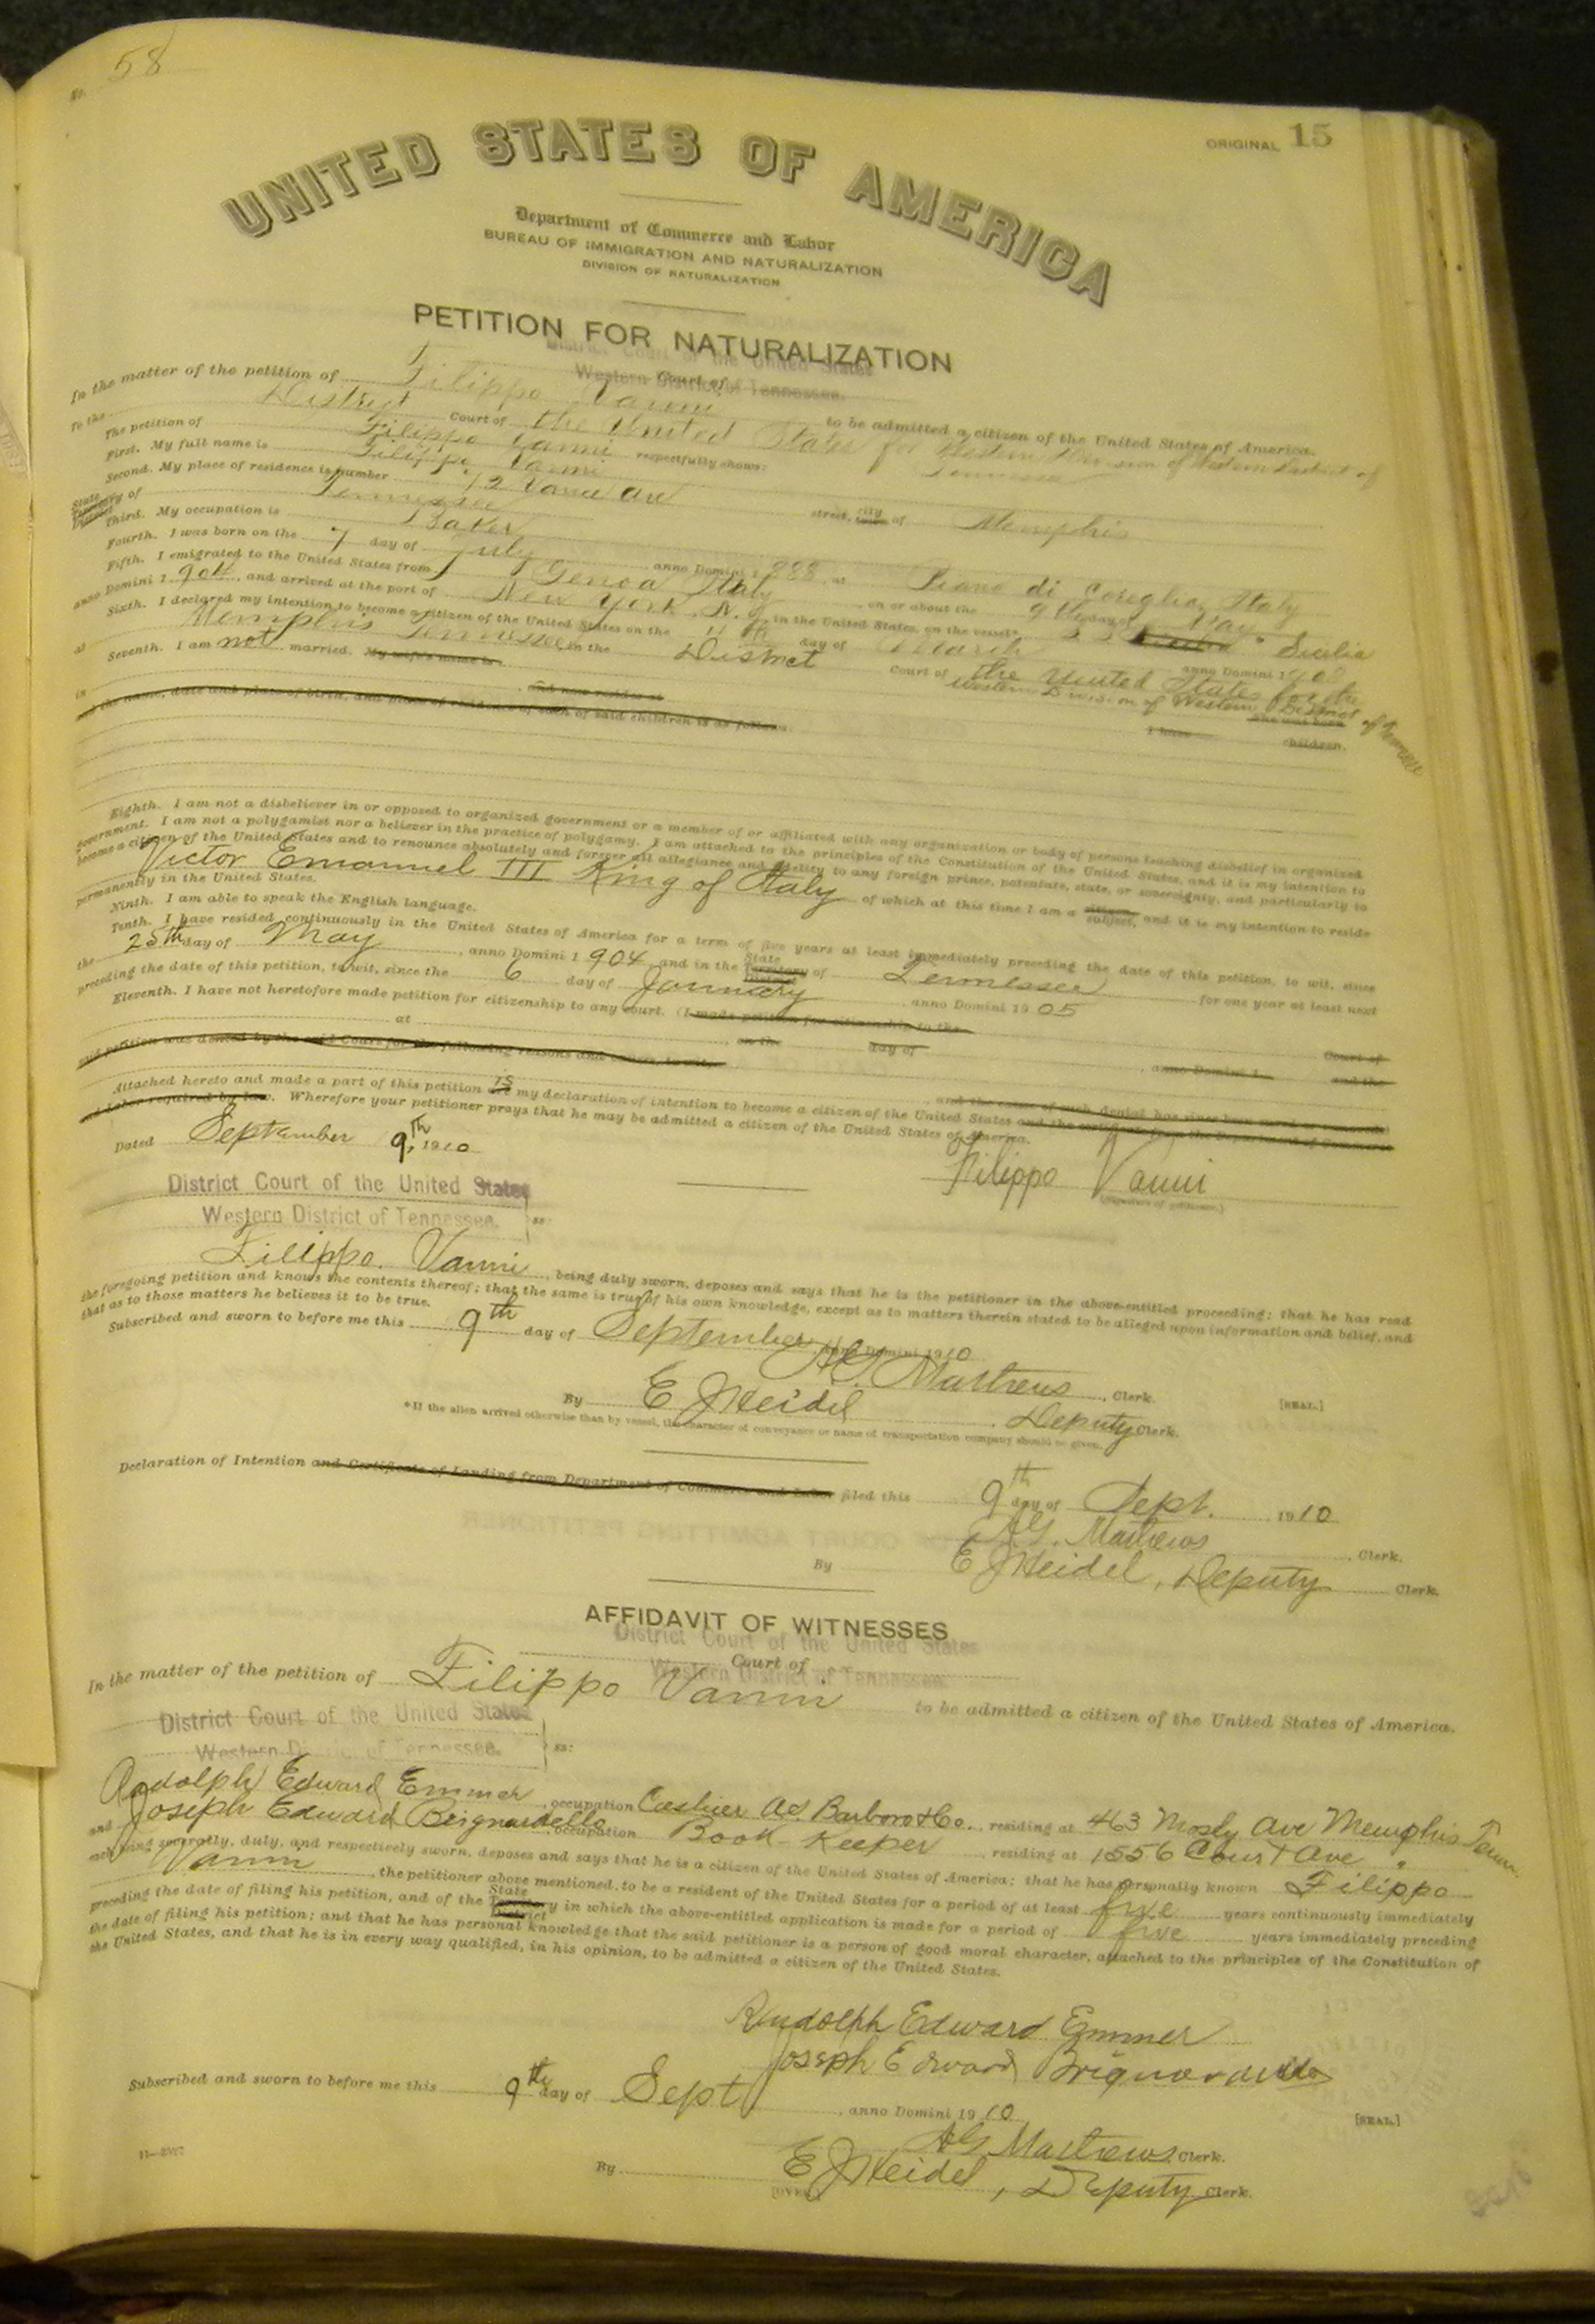 No. 58
ORIGINAL 15
UNITED STATES OF AMERICA
Department of Commerce and Labor
BUREAU OF IMMIGRATION AND NATURALIZATION
DIVISION OF NATURALIZATION
PETITION FOR NATURALIZATION
District Court of the United States
Court of
Western District of Tennessee.
In the matter of the petition of Filippo Vanni to be admitted a citizen of the United States of America.
To the District Court of the United States for Western Division of Western District of Tennessee
The petition of Filippo Vanni respectfully shows:
First. My full name is Filippo Vanni
Second. My place of residence is number 72 Vance Ave street, city of Memphis
State Territory District of Tennessee
Third. My occupation is Baker
Fourth. I was born on the 7 day of July anno Domini 1888, at Piano di Coreglia, Italy
Fifth. I emigrated to the United States from Genoa Italy on or about the 9th day of May
anno Domini 1904, and arrived at the port of New York. N.Y. in the United States, on the vessel* S S Sicilia
Sixth. I declared my intention to become a citizen of the United States on the 11th day of March anno Domini 1908
at Memphis Tennessee, in the District Court of the United States for the Western Division of Western District of Tennessee
Seventh. I am not married. My wife's name is She was born
in and now resides at I have children.
and the name, date and place of birth, and place of residence of each of said children is as follows:
Eighth. I am not a disbeliever in or opposed to organized government or a member of or affiliated with any organization or body of persons teaching disbelief in organized
government. I am not a polygamist nor a believer in the practice of polygamy. I am attached to the principles of the Constitution of the United States, and it is my intention to
become a citizen of the United States and to renounce absolutely and forever all allegiance and fidelity to any foreign prince, potentate, state, or sovereignty, and particularly to
Victor Emanuel III King of Italy of which at this time I am a citizen subject, and it is my intention to reside
permanently in the United States.
Ninth. I am able to speak the English language.
Tenth. I have resided continuously in the United States of America for a term of five years at least immediately preceding the date of this petition, to wit, since
the 25th day of May, anno Domini 1904, and in the State Territory District of Tennessee for one year at least next
preceding the date of this petition, to wit, since the 6 day of January, anno Domini 1905
Eleventh. I have not heretofore made petition for citizenship to any court. (I made petition for citizenship to the Court of
at on the day of, anno Domini 1 and the
said petition was denied by the said Court for the following reasons and causes, to wit,
, and the cause of such denial has since been cured or removed.)
Attached hereto and made a part of this petition are is my declaration of intention to become a citizen of the United States and the certificate from the Department of Commerce
and Labor required by law. Wherefore your petitioner prays that he may be admitted a citizen of the United States of America.
Dated September 9th, 1910
Filippo Vanni
(Signature of petitioner.)
District Court of the United States
Western District of Tennessee. ss:
Filippo Vanni, being duly sworn, deposes and says that he is the petitioner in the above-entitled proceeding; that he has read
the foregoing petition and knows the contents thereof; that the same is true of his own knowledge, except as to matters therein stated to be alleged upon information and belief, and
that as to those matters he believes it to be true.
Subscribed and sworn to before me this 9th day of September, anno Domini 1910
A G. Mathews, Clerk.
[SEAL.]
By E J Heidel, Deputy Clerk.
*If the alien arrived otherwise than by vessel, the character of conveyance or name of transportation company should be given.
Declaration of Intention and Certificate of Landing from Department of Commerce and Labor filed this 9th day of Sept. 1910
A G. Mathews, Clerk.
By E J Heidel, Deputy Clerk.
AFFIDAVIT OF WITNESSES
District Court of the United States
Court of
Western District of Tennessee.
In the matter of the petition of Filippo Vanni to be admitted a citizen of the United States of America.
District Court of the United States
Western District of Tennessee. ss:
Rudolph Edward Emmer, occupation Cashier A S. Barboro & Co., residing at 463 Mosby Ave Memphis Tenn.
and Joseph Edward Brignardello, occupation Book-Keeper, residing at 1556 Court Ave "
each being severally, duly, and respectively sworn, deposes and says that he is a citizen of the United States of America; that he has personally known Filippo
Vanni, the petitioner above mentioned, to be a resident of the United States for a period of at least five years continuously immediately
preceding the date of filing his petition, and of the State Territory District in which the above-entitled application is made for a period of five years immediately preceding
the date of filing his petition; and that he has personal knowledge that the said petitioner is a person of good moral character, attached to the principles of the Constitution of
the United States, and that he is in every way qualified, in his opinion, to be admitted a citizen of the United States.
Rudolph Edward Emmer
Joseph Edward Brignardello
Subscribed and sworn to before me this 9th day of Sept, anno Domini 1910
[SEAL.]
A G Mathews Clerk.
By E J Heidel, Deputy Clerk.
[OVER]